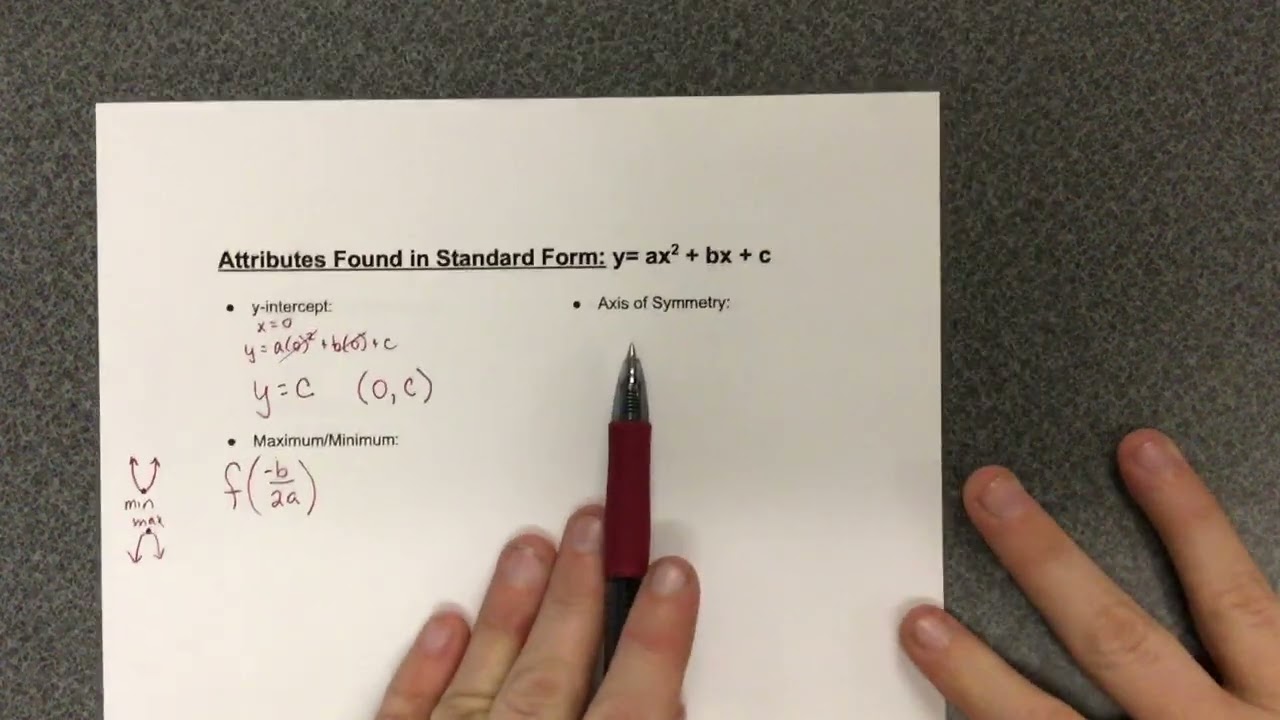 Attributes Found in Standard Form: y= ax² + bx + c
• y-intercept:
x=0
y = a(0)² + b(0) + c
y = c (0, c)
• Maximum/Minimum:
f(-b/2a)
min
max
• Axis of Symmetry: